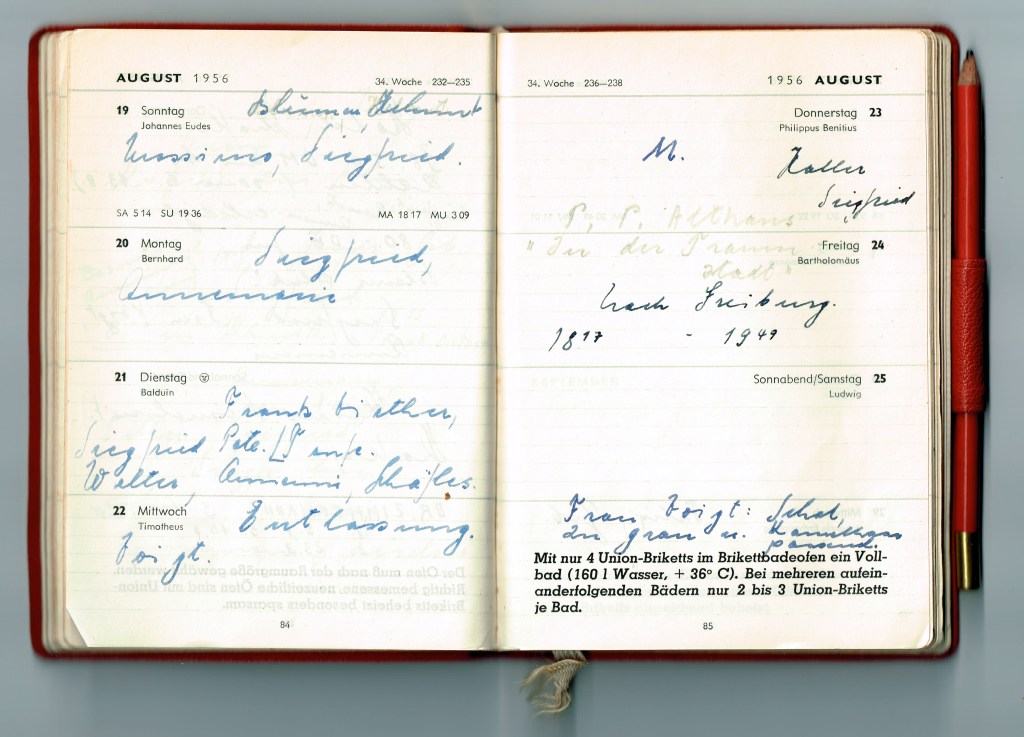 AUGUST 1956
34. Woche 232—235
19 Sonntag
Johannes Eudes
Helmut
Massimo, Siegfried.
SA 5 14 SU 19 36 MA 18 17 MU 3 09
20 Montag
Bernhard
Siegfried,
Annemarie
21 Dienstag
Balduin
Frank
Siegfried Pete.
Walter,
22 Mittwoch
Timotheus
Entlassung.
Voigt.
84
34. Woche 236—238
1956 AUGUST
Donnerstag 23
Philippus Benitius
M.
Haller
Siegfried
P. P. Althaus
"In der Traum
Freitag 24
Bartholomäus
stadt"
Nach Freiburg.
1817 - 1949
Sonnabend/Samstag 25
Ludwig
Frau Voigt: Schal,
in grau u.
passend
Mit nur 4 Union-Briketts im Brikettbadeofen ein Voll-
bad (160 l Wasser, + 36° C). Bei mehreren aufein-
anderfolgenden Bädern nur 2 bis 3 Union-Briketts
je Bad.
85